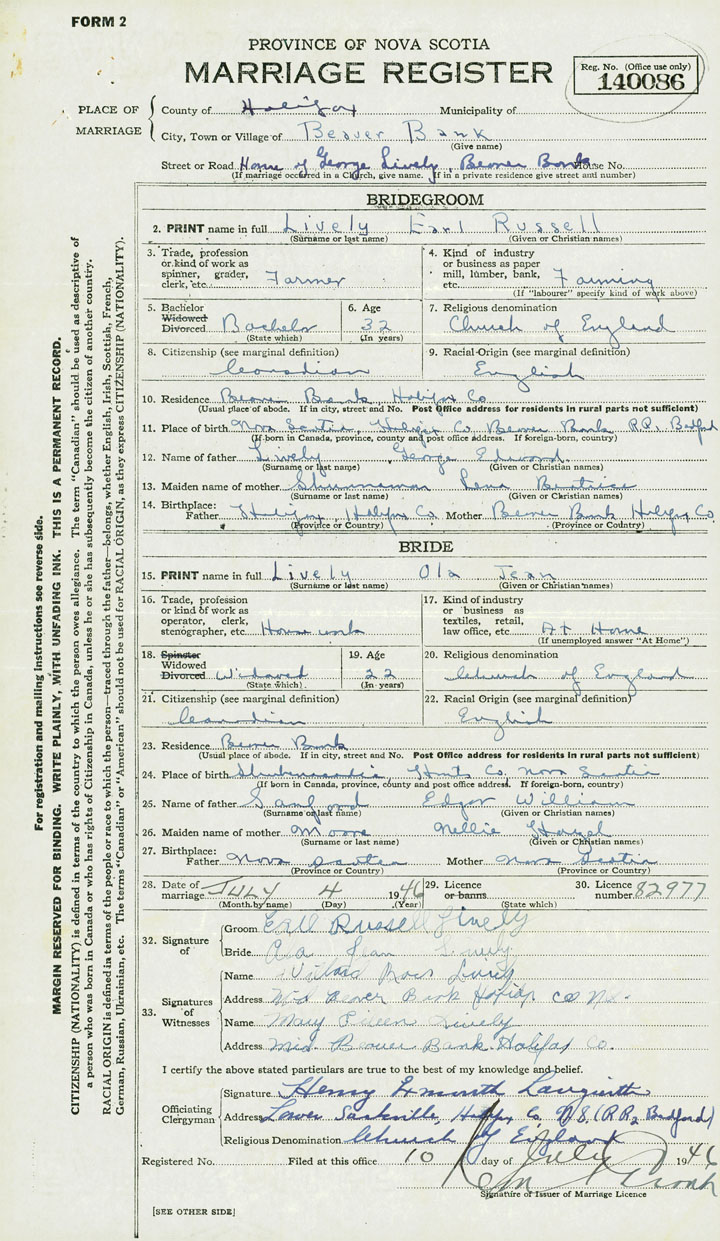 FORM 2
PROVINCE OF NOVA SCOTIA
MARRIAGE REGISTER
Reg. No. (Office use only)
140086
PLACE OF MARRIAGE
County of Halifax Municipality of
City, Town or Village of Beaver Bank
(Give name)
Street or Road Home of George Lively, Beaver Bank House No.
(If marriage occurred in a Church, give name. If in a private residence give street and number)
BRIDEGROOM
2. PRINT name in full Lively Earl Russell
(Surname or last name) (Given or Christian names)
3. Trade, profession or kind of work as spinner, grader, clerk, etc. Farmer
4. Kind of industry or business as paper mill, lumber, bank, etc. Farming
(If "labourer" specify kind of work above)
5. Bachelor Widowed Divorced Bachelor
(State which)
6. Age 32
(In years)
7. Religious denomination
Church of England
8. Citizenship (see marginal definition)
Canadian
9. Racial Origin (see marginal definition)
English
10. Residence Beaver Bank, Halifax Co
(Usual place of abode. If in city, street and No. Post Office address for residents in rural parts not sufficient)
11. Place of birth Nova Scotia, Halifax Co Beaver Bank R.R.1 Bedford
(If born in Canada, province, county and post office address. If foreign-born, country)
12. Name of father Lively George Edward
(Surname or last name) (Given or Christian names)
13. Maiden name of mother Lena Beatrice
(Surname or last name) (Given or Christian names)
14. Birthplace: Father Halifax, Halifax Co Mother Beaver Bank Halifax Co
(Province or Country) (Province or Country)
BRIDE
15. PRINT name in full Lively Ola Jean
(Surname or last name) (Given or Christian names)
16. Trade, profession or kind of work as operator, clerk, stenographer, etc. House work
17. Kind of industry or business as textiles, retail, law office, etc. At Home
(If unemployed answer "At Home")
18. Spinster Widowed Divorced Widowed
(State which)
19. Age 22
(In years)
20. Religious denomination
Church of England
21. Citizenship (see marginal definition)
Canadian
22. Racial Origin (see marginal definition)
English
23. Residence Beaver Bank
(Usual place of abode. If in city, street and No. Post Office address for residents in rural parts not sufficient)
24. Place of birth Shubenacadie, Hants Co. Nova Scotia
(If born in Canada, province, county and post office address. If foreign-born, country)
25. Name of father Sanford Edgar William
(Surname or last name) (Given or Christian names)
26. Maiden name of mother Moore Nellie Hazel
(Surname or last name) (Given or Christian names)
27. Birthplace: Father Nova Scotia Mother Nova Scotia
(Province or Country) (Province or Country)
28. Date of marriage JULY 4 1946
(Month by name) (Day) (Year)
29. Licence or banns
(State which)
30. Licence number 82977
32. Signature of
Groom Earl Russell Lively
Bride Ola Jean Lively
33. Signatures of Witnesses
Name Lively
Address Mid Beaver Bank Halifax Co N.S.
Name Mary Eileen Lively
Address Mid. Beaver Bank Halifax Co.
I certify the above stated particulars are true to the best of my knowledge and belief.
Officiating Clergyman
Signature Henry
Address Lower Sackville, Halifax Co N.S. (R.R.2 Bedford)
Religious Denomination Church of England
Registered No. Filed at this office 10 day of July 1946
Signature of Issuer of Marriage Licence
[SEE OTHER SIDE]
For registration and mailing instructions see reverse side.
MARGIN RESERVED FOR BINDING. WRITE PLAINLY, WITH UNFADING INK. THIS IS A PERMANENT RECORD.
CITIZENSHIP (NATIONALITY) is defined in terms of the country to which the person owes allegiance. The term "Canadian" should be used as descriptive of
a person who was born in Canada or who has rights of Citizenship in Canada, unless he or she has subsequently become the citizen of another country.
RACIAL ORIGIN is defined in terms of the people or race to which the person—traced through the father—belongs, whether English, Irish, Scottish, French,
German, Russian, Ukrainian, etc. The terms "Canadian" or "American" should not be used for RACIAL ORIGIN, as they express CITIZENSHIP (NATIONALITY).